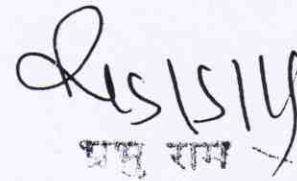 15/5/14
प्रभु राम